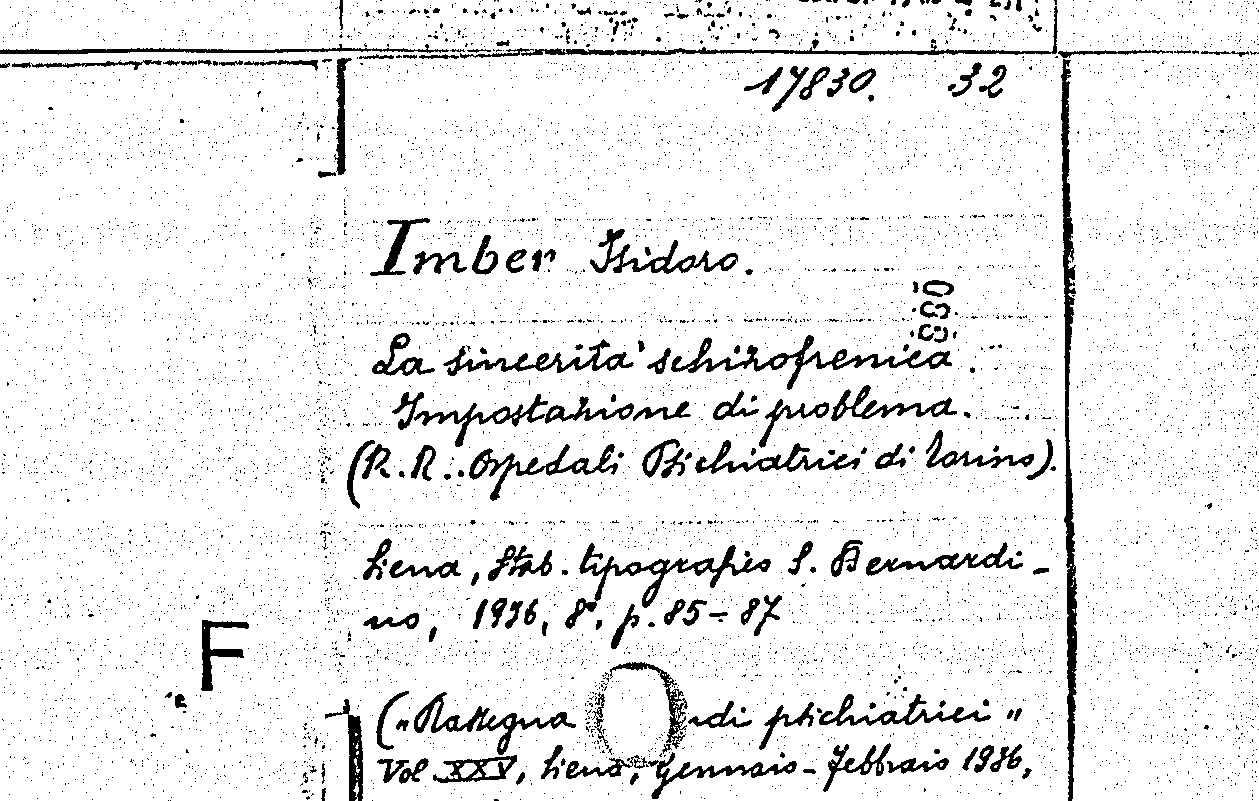 17830. 32
Imber Isidoro.
880
La sincerità schizofrenica.
Impostazione di problema.
(R.R. Ospedali Psichiatrici di Torino).
Siena, Stab. tipografico S. Bernardi-
no, 1936, 8°. p. 85-87
F
("Rassegna di psichiatrici"
Vol XXV, Siena, gennaio-febbraio 1936,